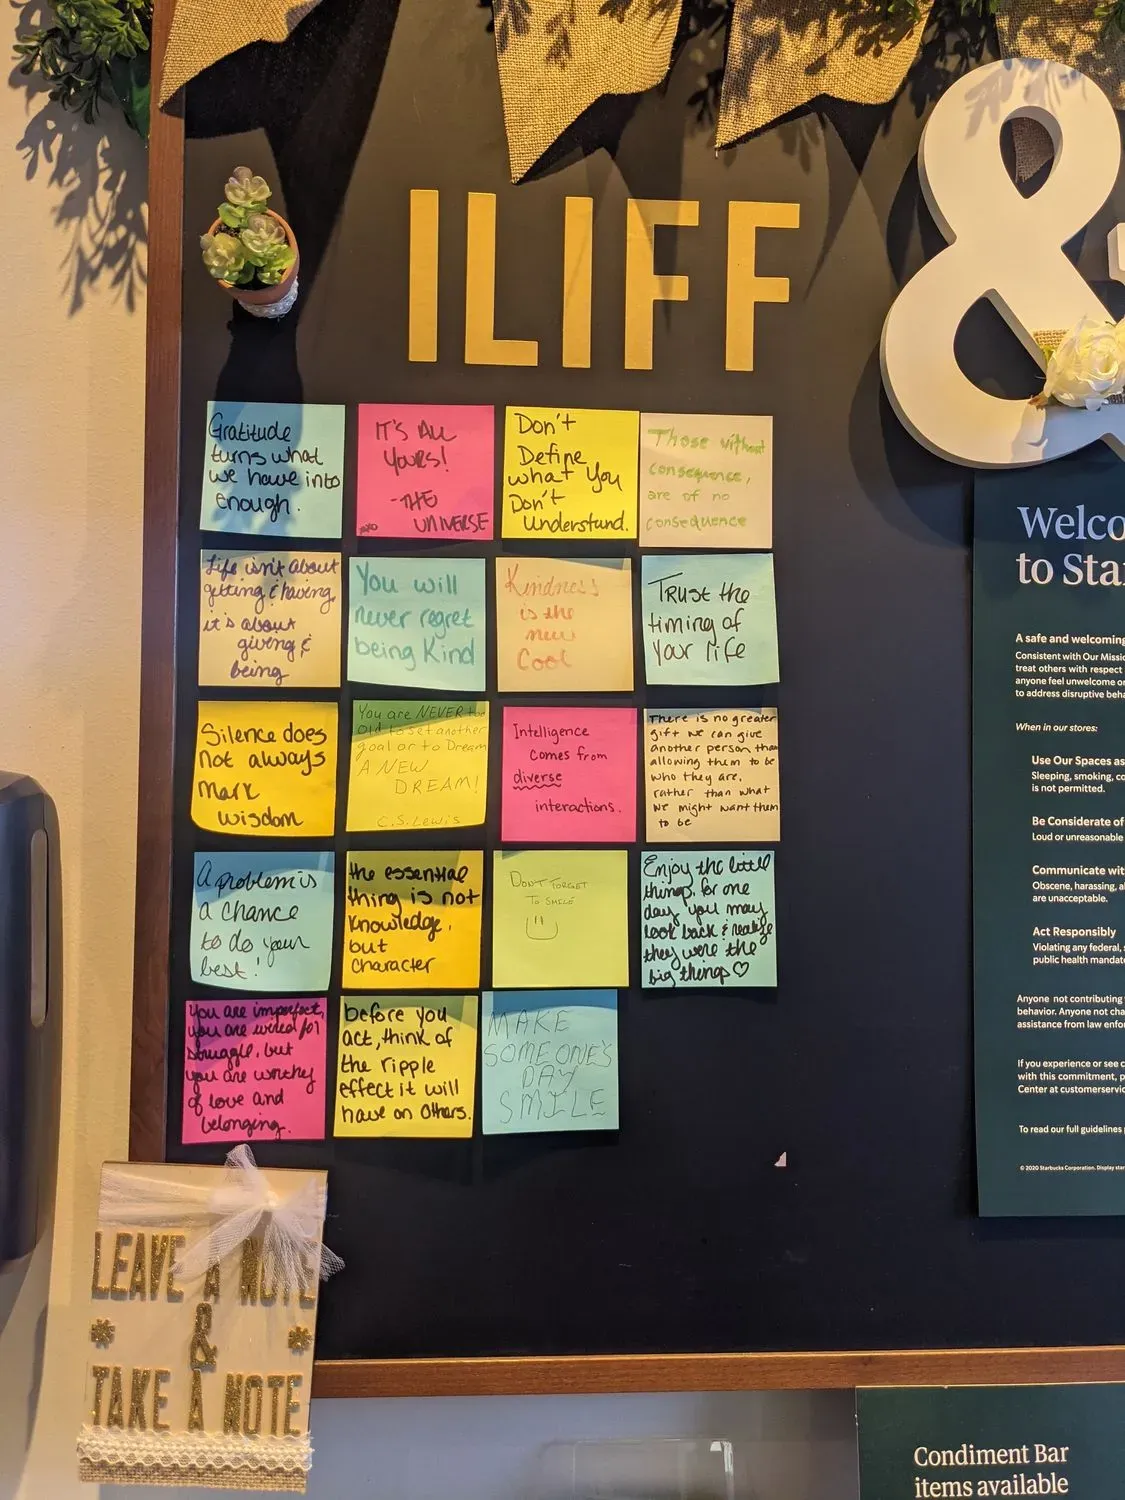 ILIFF
&
Gratitude
turns what
we have into
enough.
IT'S ALL
YOURS!
-THE
UNIVERSE
xoxo
Don't
Define
what You
Don't
Understand.
Those without
consequence,
are of no
consequence
Life isn't about
getting & having,
it's about
giving &
being
You will
never regret
being Kind
Kindness
is the
new
Cool
Trust the
timing of
Your life
Silence does
not always
Mark
wisdom
You are NEVER too
old to set another
goal or to Dream
A NEW
DREAM!
C.S. Lewis
Intelligence
comes from
diverse
interactions.
There is no greater
gift we can give
another person than
allowing them to be
who they are.
rather than what
we might want them
to be
A problem is
a chance
to do your
best!
the essential
thing is not
knowledge,
but
character
DON'T FORGET
TO SMILE
Enjoy the little
things, for one
day you may
look back & realize
they were the
big things ♡
You are imperfect,
you are wired for
struggle, but
you are worthy
of love and
belonging.
before you
act, think of
the ripple
effect it will
have on Others.
MAKE
SOMEONE'S
DAY
SMILE
LEAVE A NOTE
&
TAKE A NOTE
Welco
to Sta
A safe and welcoming
Consistent with Our Missio
treat others with respect
anyone feel unwelcome or
to address disruptive beha
When in our stores:
Use Our Spaces as
Sleeping, smoking, co
is not permitted.
Be Considerate of
Loud or unreasonable
Communicate wit
Obscene, harassing, a
are unacceptable.
Act Responsibly
Violating any federal, s
public health mandate
Anyone not contributing
behavior. Anyone not cha
assistance from law enfor
If you experience or see c
with this commitment, p
Center at customerservic
To read our full guidelines
© 2020 Starbucks Corporation. Display star
Condiment Bar
items available